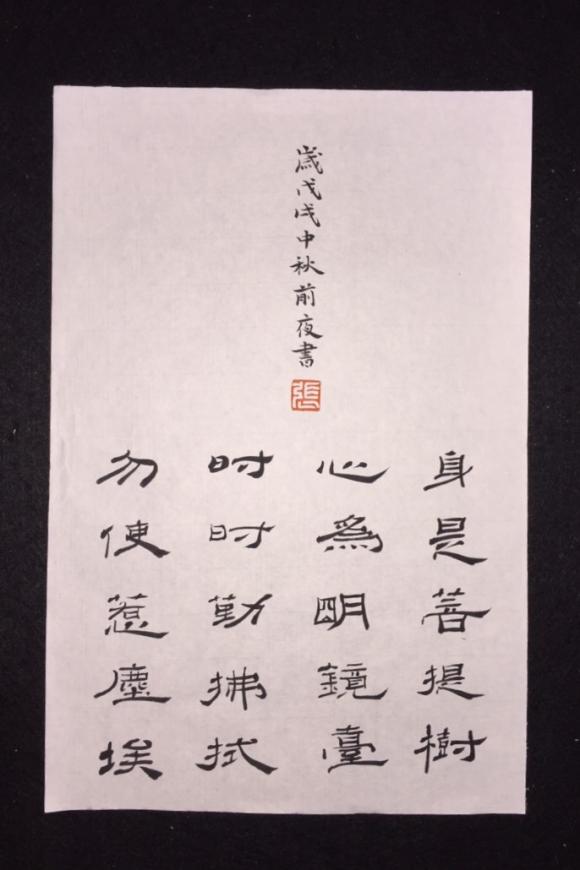 身是菩提樹
心為明鏡臺
时时勤拂拭
勿使惹塵埃
歲戊戌中秋前夜書
張